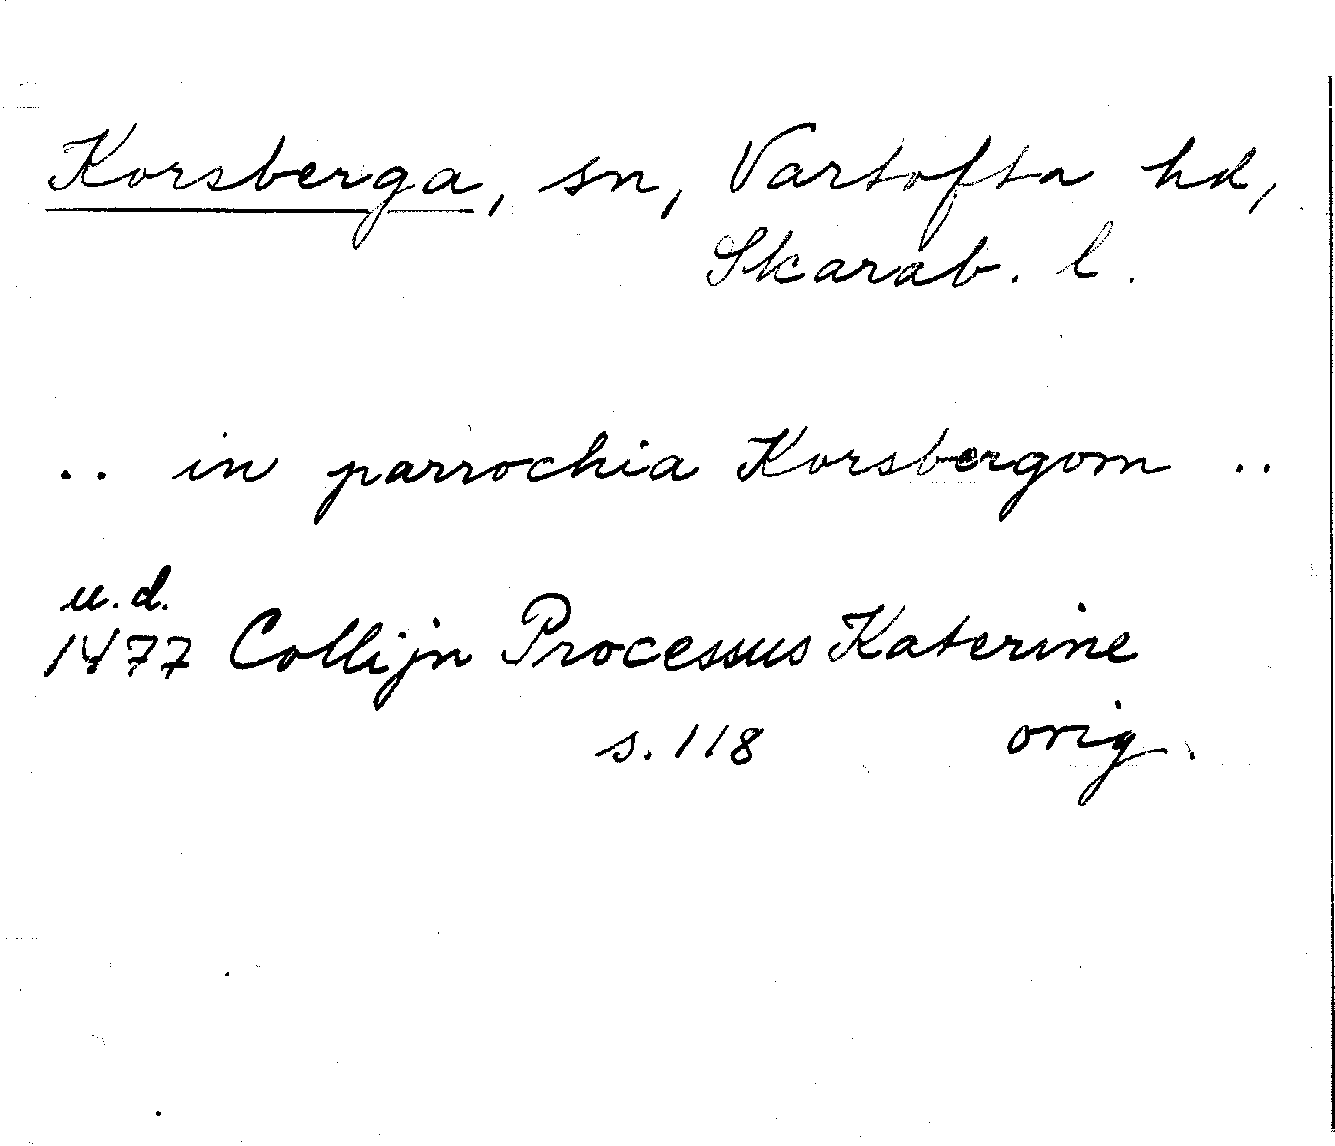 Korsberga, sn, Vartofta hd,
Skarab. l.
.. in parrochia Korsbergom ..
u.d.
1477 Collijn Processus Katerine
s. 118 orig.